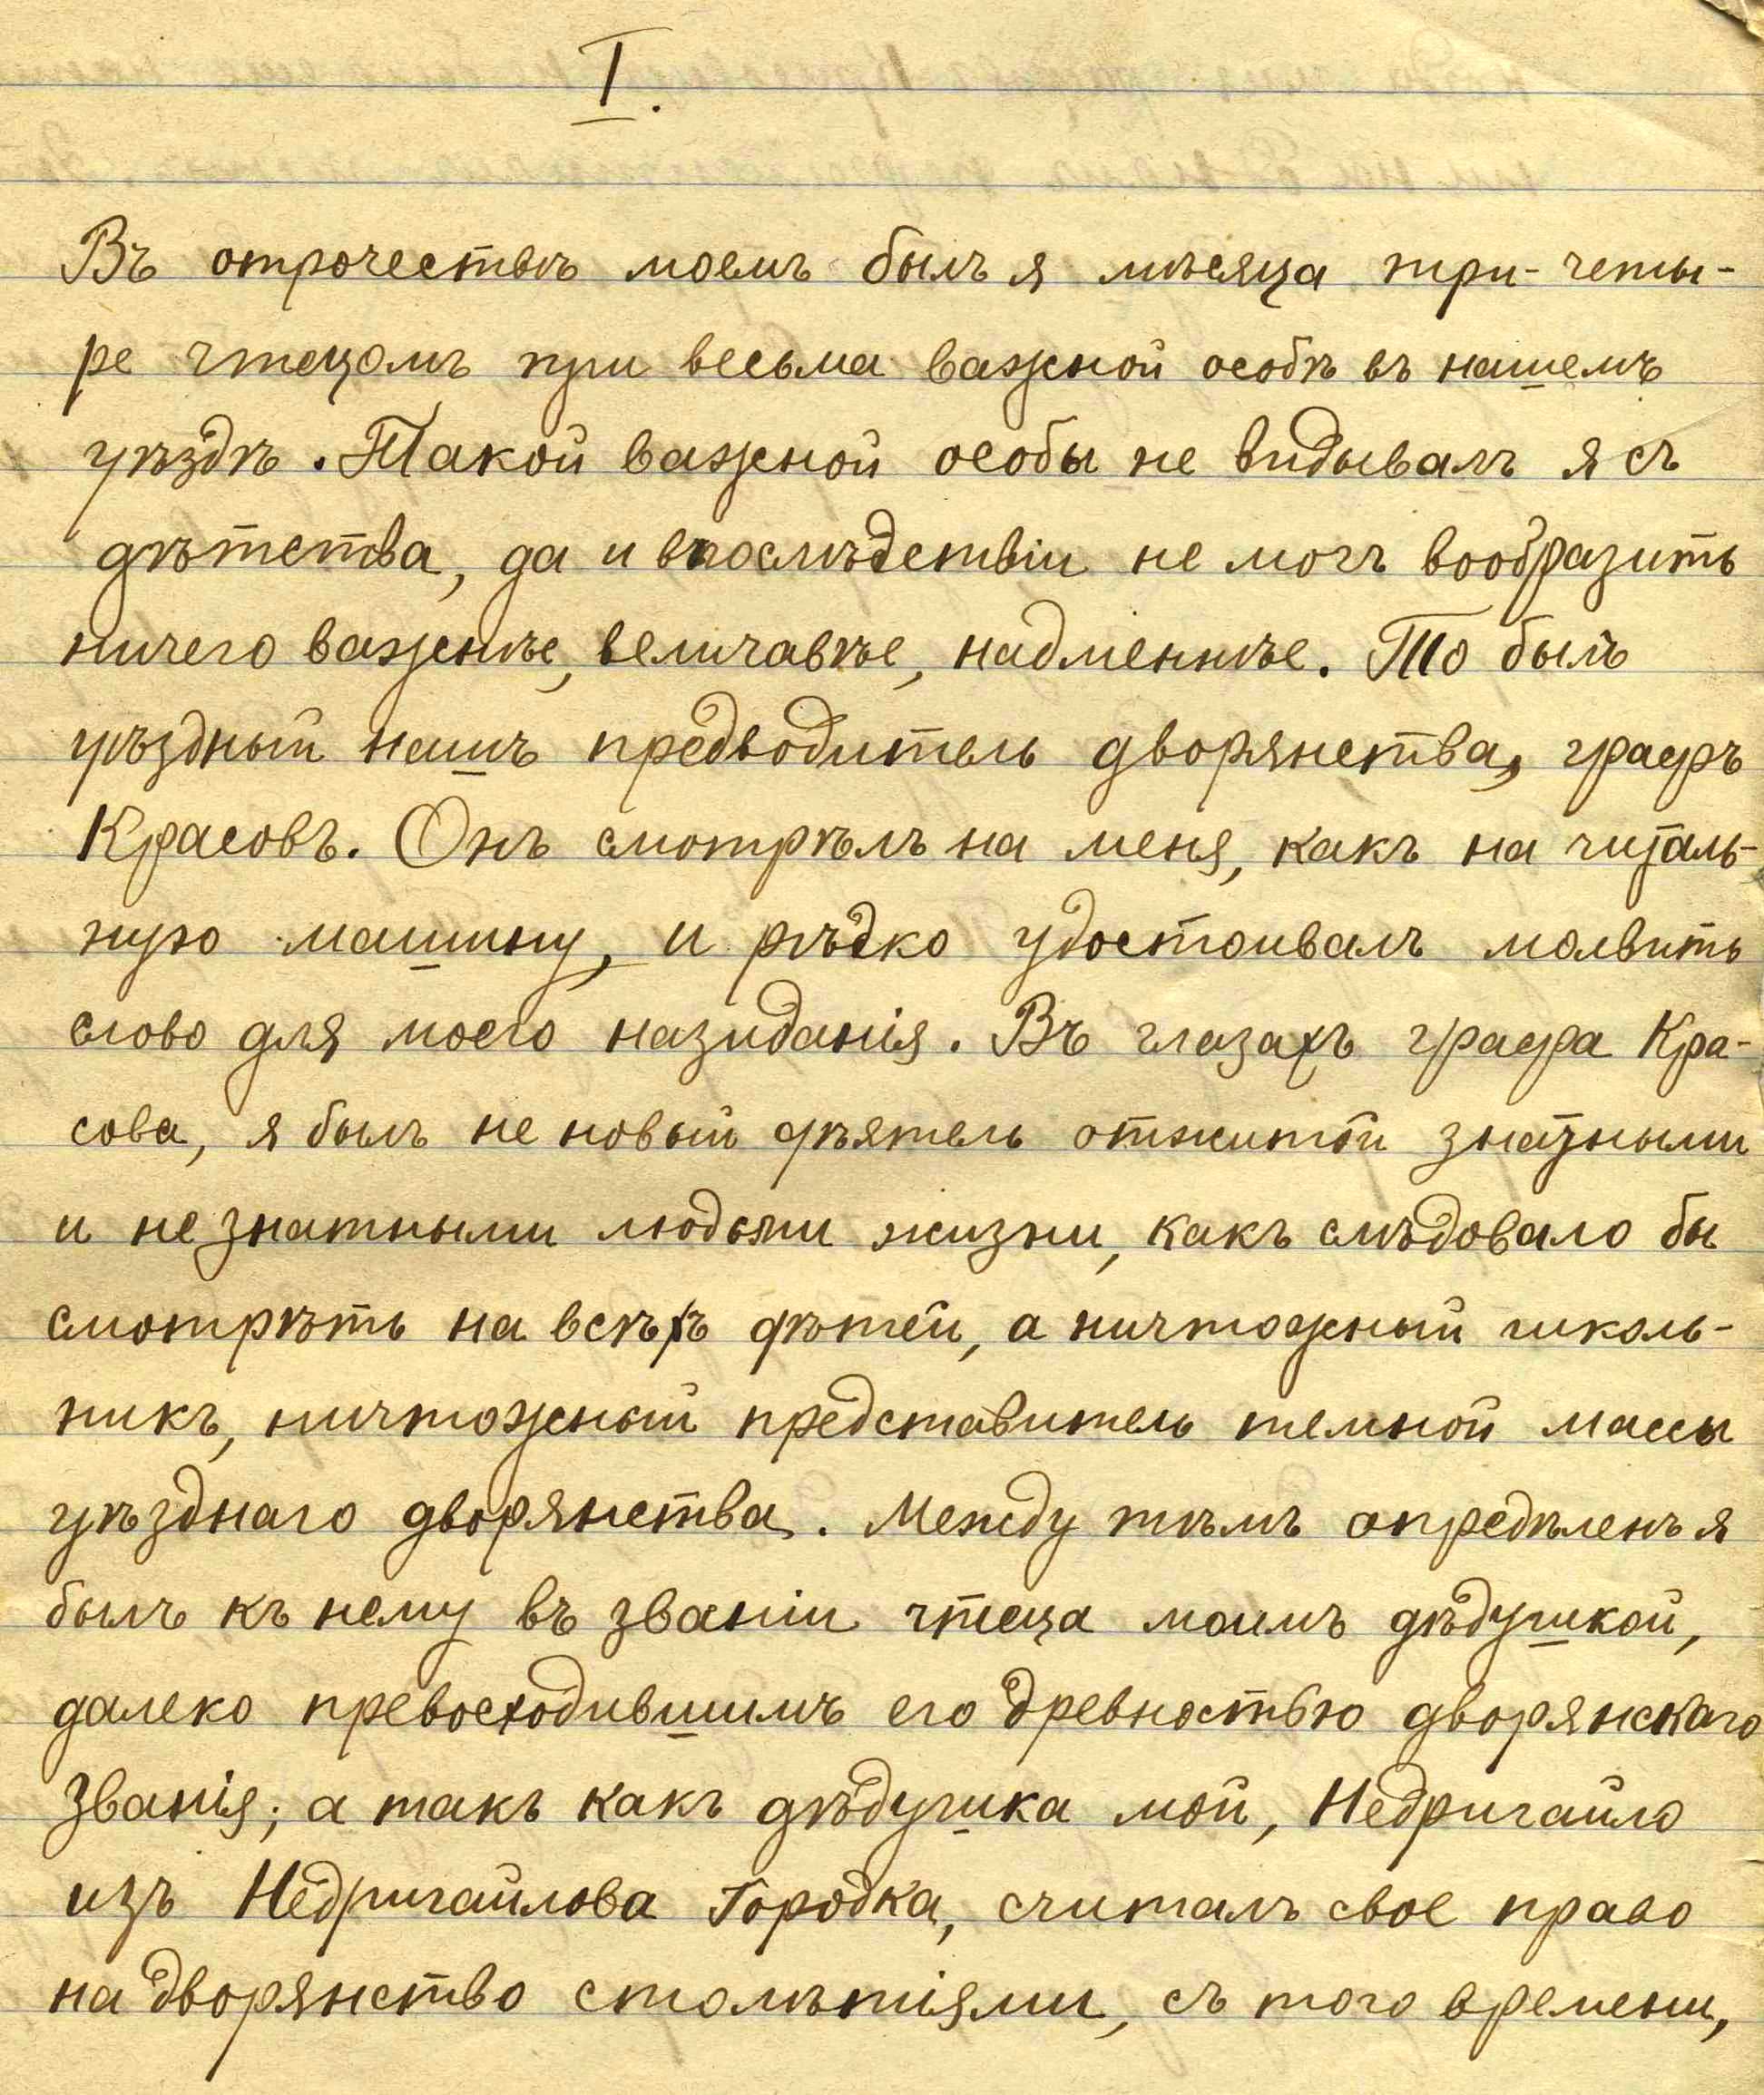 I.
Въ отрочествѣ моемъ былъ я мѣсяца три-четы-
ре чтецомъ при весьма важной особѣ въ нашемъ
уѣздѣ. Такой важной особы не видывалъ я съ
дѣтства, да и впослѣдствіи не могъ вообразить
ничего важнѣе, величавѣе, надменнѣе. То былъ
уѣздный нашъ предводитель дворянства, графъ
Красовъ. Онъ смотрѣлъ на меня, какъ на читаль-
ную машину, и рѣдко удостоивалъ молвить
слово для моего назиданія. Въ глазахъ графа Кра-
сова, я былъ не новый дѣятель отжитой знатными
и незнатными людьми жизни, какъ слѣдовало бы
смотрѣть на всѣхъ дѣтей, а ничтожный школь-
никъ, ничтожный представитель темной массы
уѣзднаго дворянства. Между тѣмъ опредѣленъ я
былъ къ нему въ званіи чтеца моимъ дѣдушкой,
далеко превосходившимъ его древностью дворянскаго
званія; а такъ какъ дѣдушка мой, Недригайло
изъ Недригайлова Городка, считалъ свое право
на дворянство столѣтіями, съ того времени,